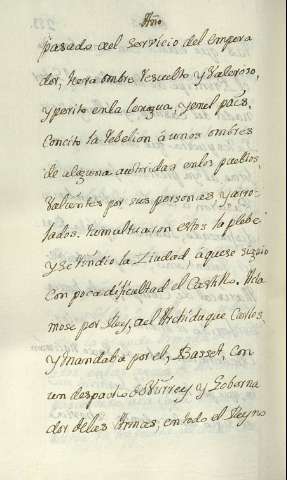 Año
pasado ael Servicio del Empera
dor, hera ombre resuelto y Valeroso,
y perito en la lengua, y en el país.
Concito la rebelion à unos ombres
de alguna autoridad en los pueblos,
Valientes por sus personas y arro
jados. tumultuaron estos la plebe
y se rindio la Ciudad, à que se siguio
con poca dificultad el Castillo. Acla
mose por Rey, ael Archiduque Carlos
y mandaba por el, Basset, con
un despacho de Virrey y Governa
dor de las Armas, en todo el Reyno